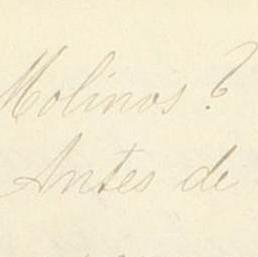 Molinos?
Antes de